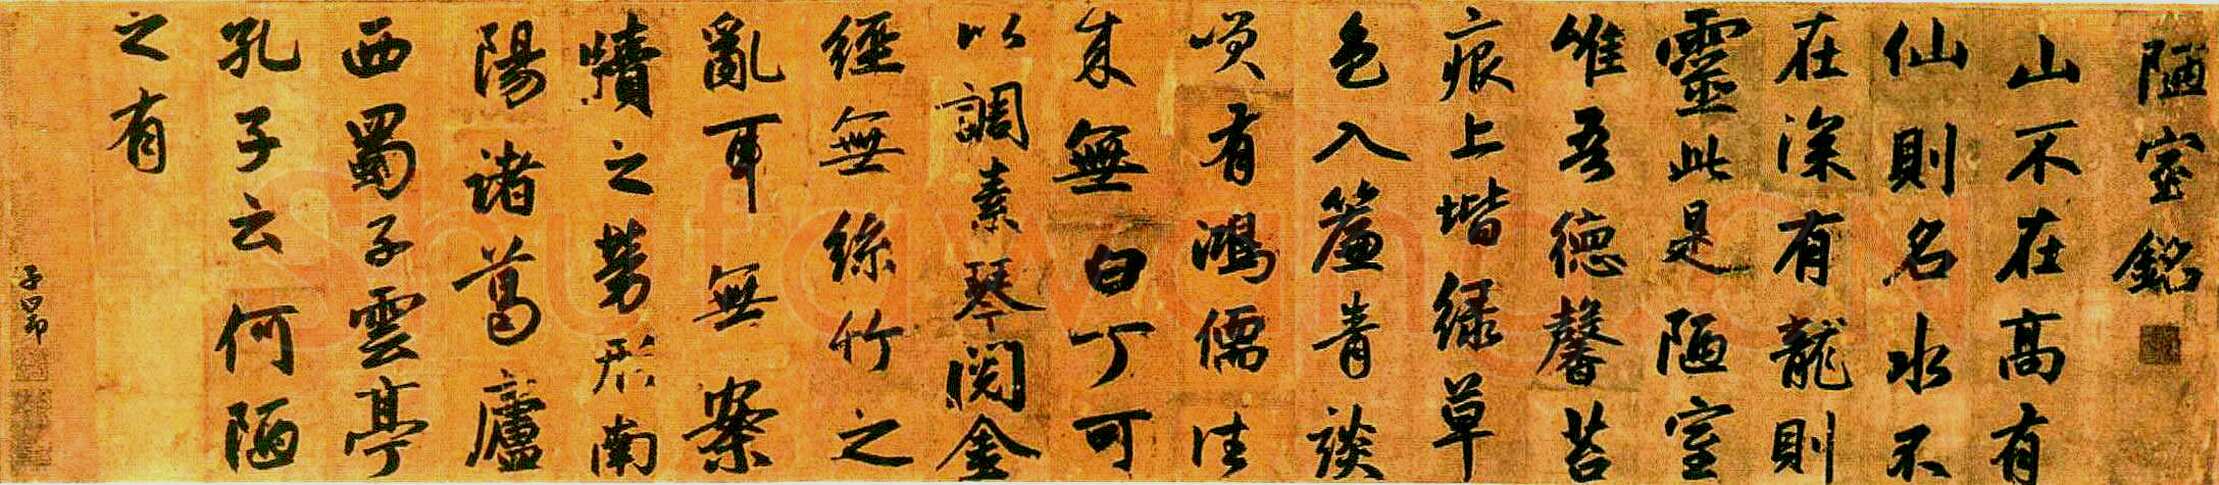 陋室銘
山不在高有
仙則名水不
在深有龍則
靈此是陋室
惟吾德馨苔
痕上堦緑草
色入簾青談
笑有鴻儒往
来無白丁可
以調素琴閱金
經無絲竹之
亂耳無案
牘之勞形南
陽諸葛廬
西蜀子雲亭
孔子云何陋
之有
子昂
Shufawang.CN